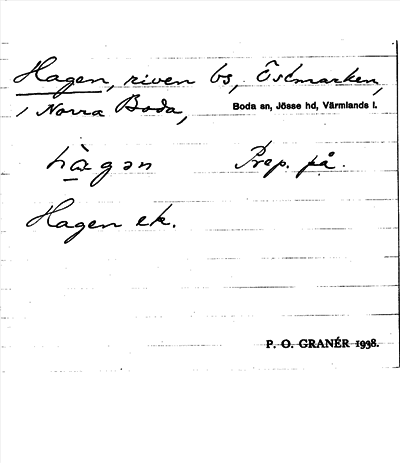 Hagen, riven bs, Östmarken,
i Norra Boda, Boda sn, Jösse hd, Värmlands l.
hàgən Prep. på.
Hagen ek.
P. O. GRANÉR 1938.